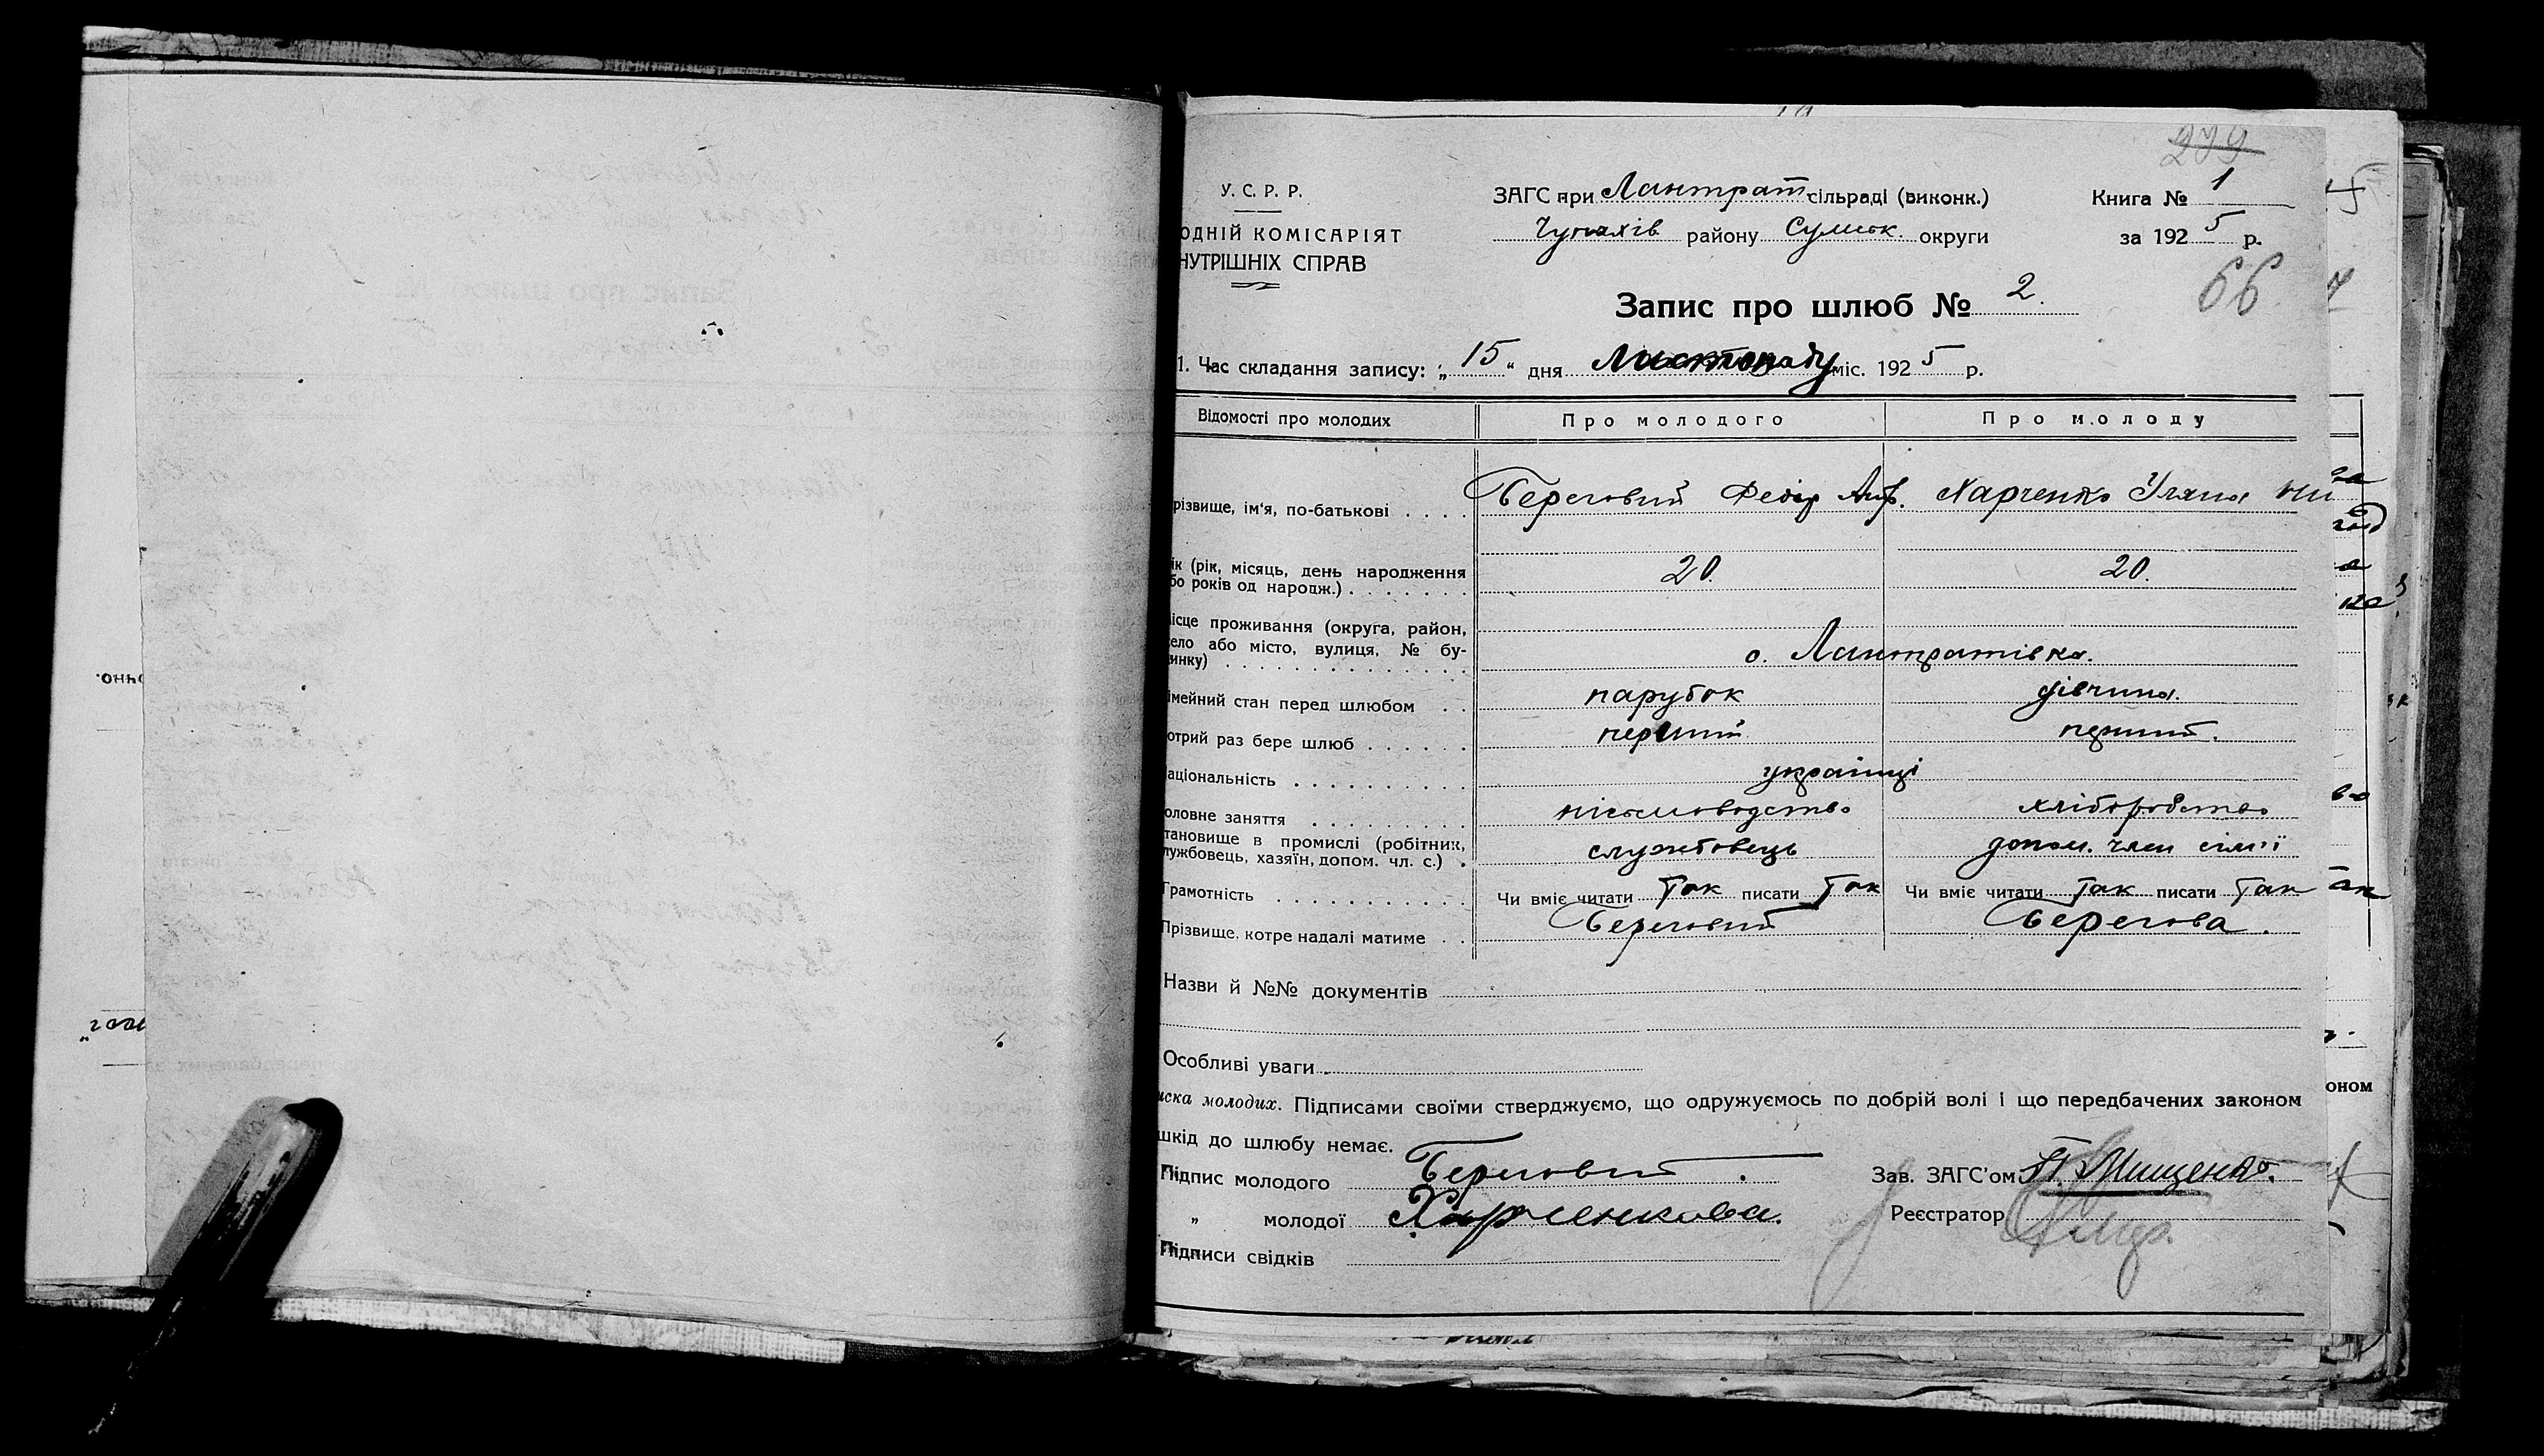 299
У. С. Р. Р.
ЗАГС при Лантрат сільраді (виконк.)
Книга № 1
ОДНІЙ КОМІСАРІЯТ
Чупахів району Сумськ. округи
за 1925 р.
НУТРІШНІХ СПРАВ
66
Запис про шлюб № 2.
1. Час складання запису: „15“ дня Листопаду міс. 1925 р.
Відомості про молодих Про молодого Про молоду
різвище, ім'я, по-батькові . . . . Береговий Федір Харченко Уляна
ік (рік, місяць, день народження 20. 20.
бо років од народж.) . . . . . . .
ісце проживання (округа, район,
ело або місто, вулиця, № бу-
инку) . . . . . . . . . . . . . о. Лантратівка.
імейний стан перед шлюбом . . парубок дівчина.
отрий раз бере шлюб . . . . . . перший перший.
аціональність . . . . . . . . . . українці
оловне заняття . . . . . . . . . письмоводство хліборобство
тановище в промислі (робітник,
лужбовець, хазяїн, допом. чл. с.) . службовець допом. член сім'ї
Грамотність . . . . . . . . . . . Чи вміє читати так писати так Чи вміє читати так писати так
Прізвище, котре надалі матиме . . Береговий Берегова.
Назви й №№ документів
Особливі уваги
иска молодих. Підписами своїми стверджуємо, що одружуємось по добрій волі і що передбачених законом
оном
шкід до шлюбу немає.
Підпис молодого Береговий.
Зав. ЗАГС'ом П. Мищенко.
„ молодої Харченкова.
Реєстратор
Підписи свідків